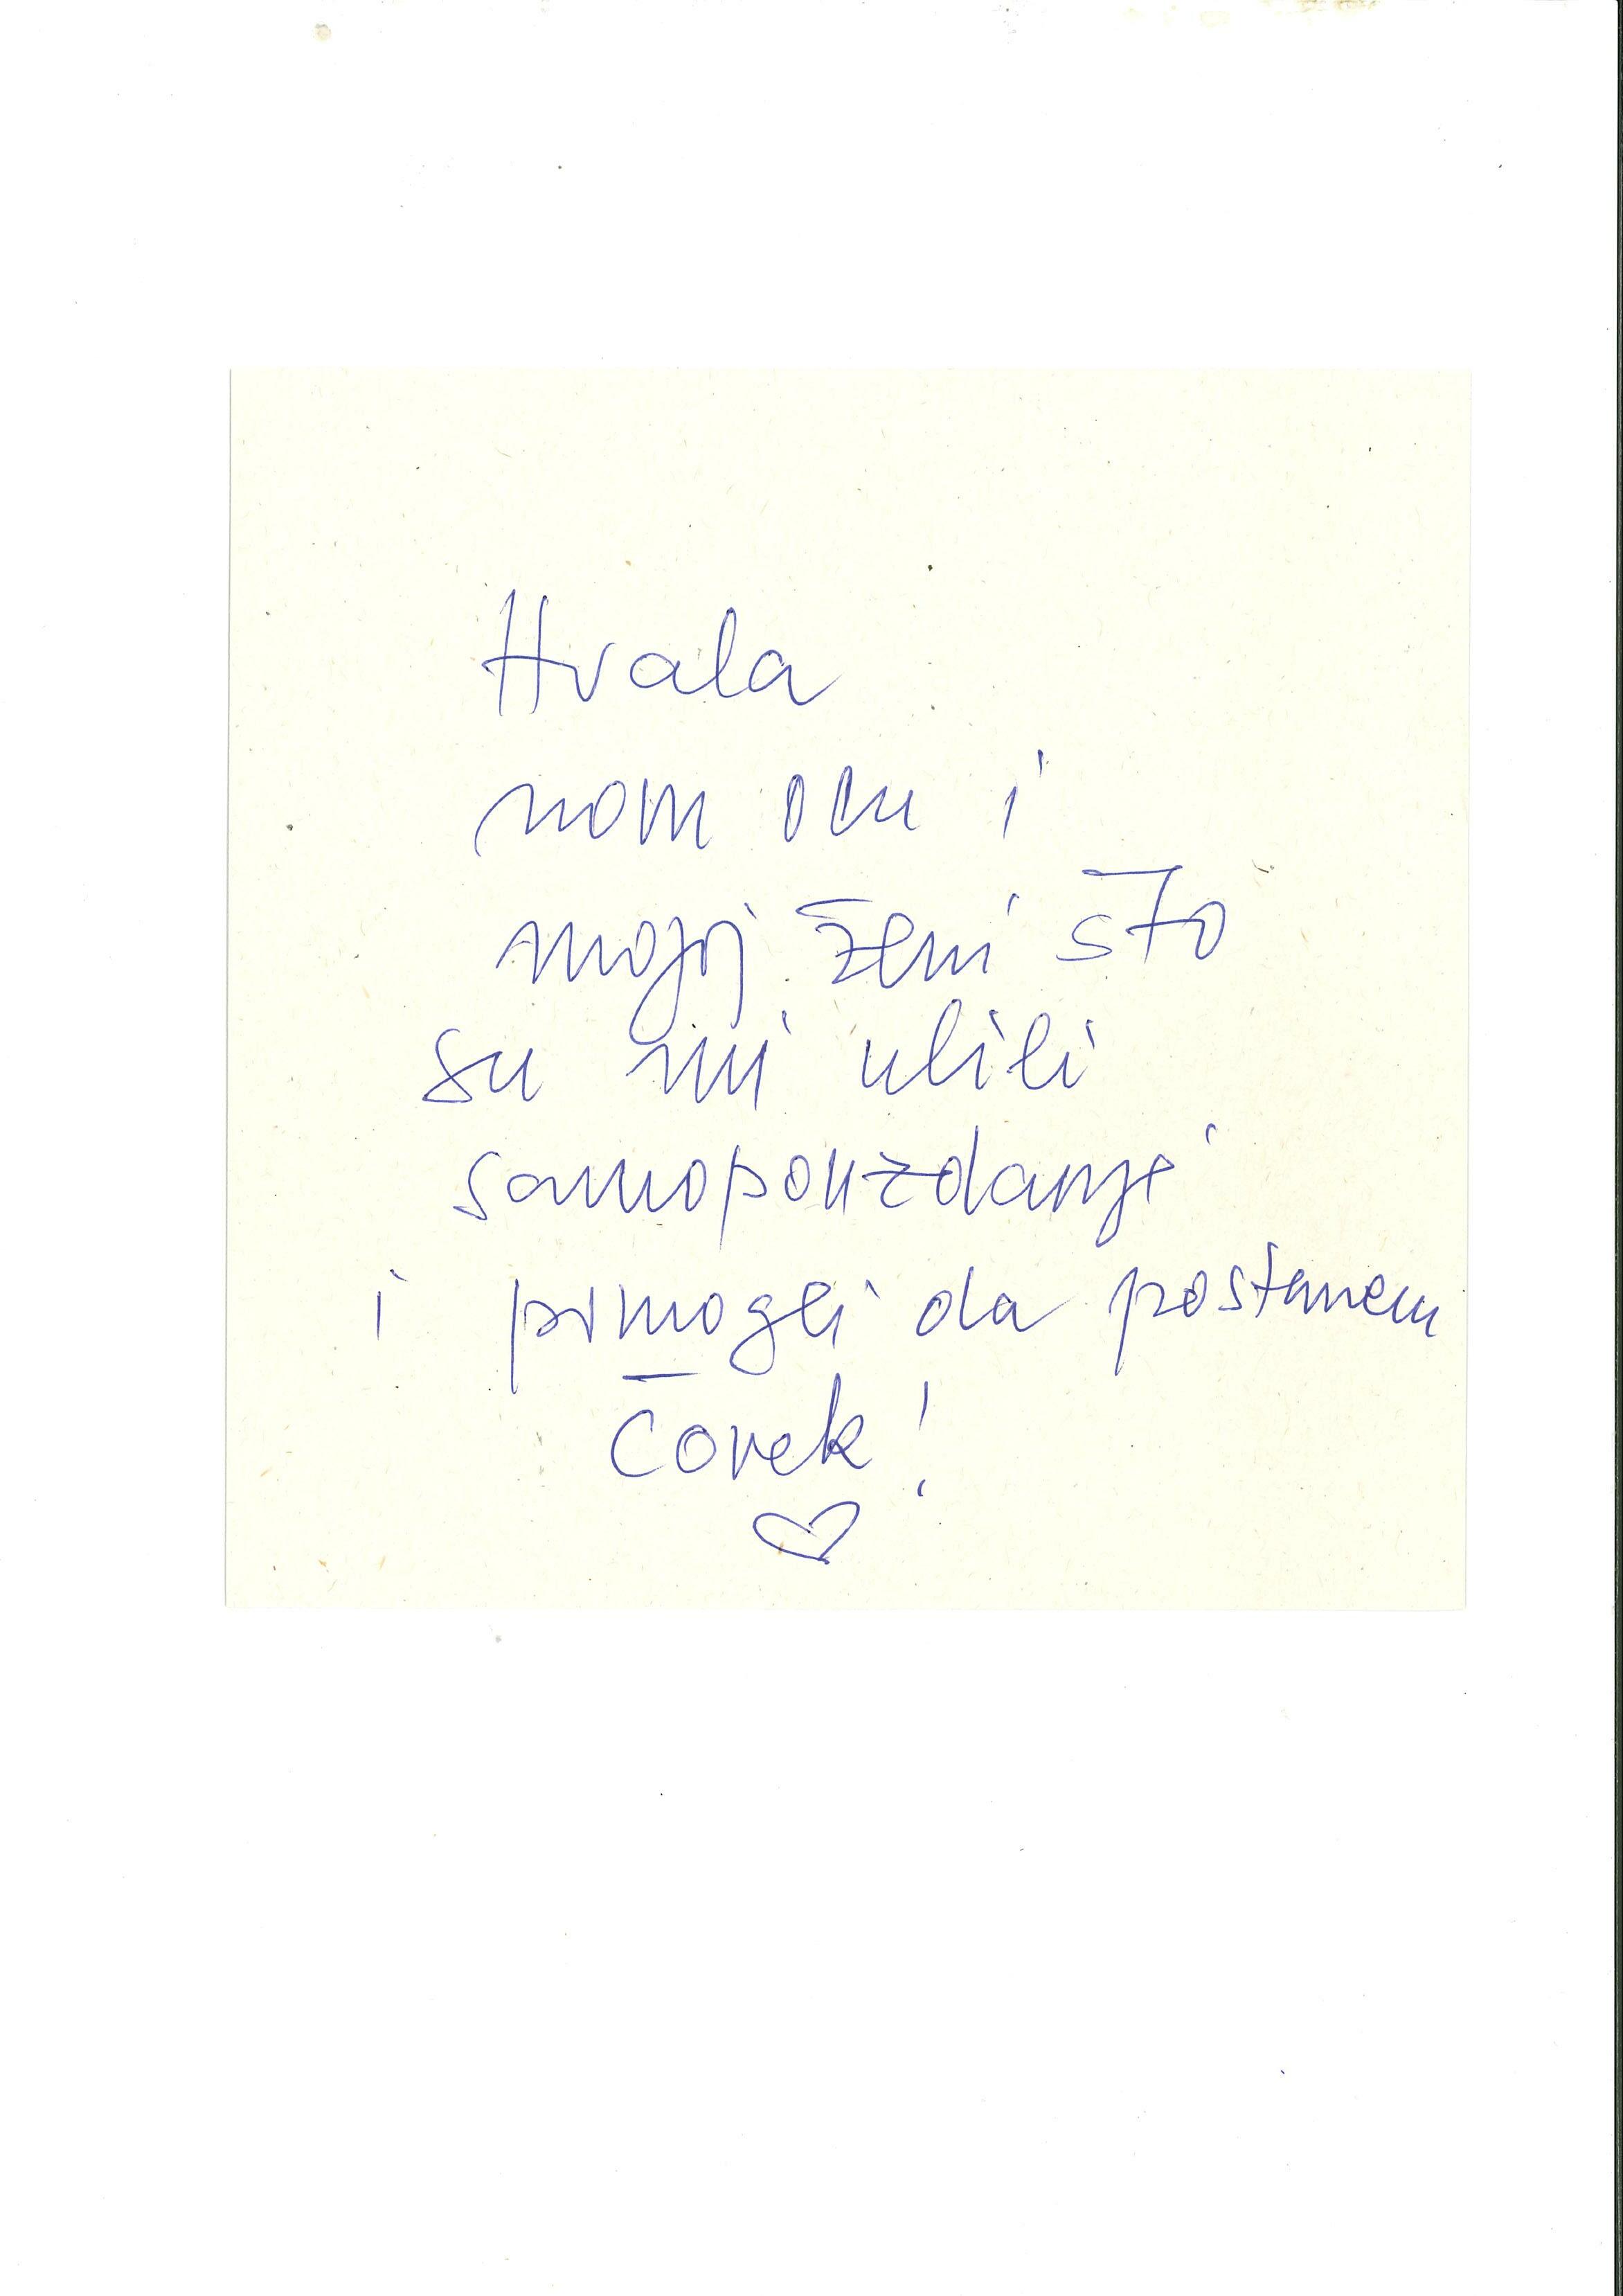 Hvala
mom ocu i
mojoj ženi što
su mi ulili
samopouzdanje
i pomogli da postanem
čovek!